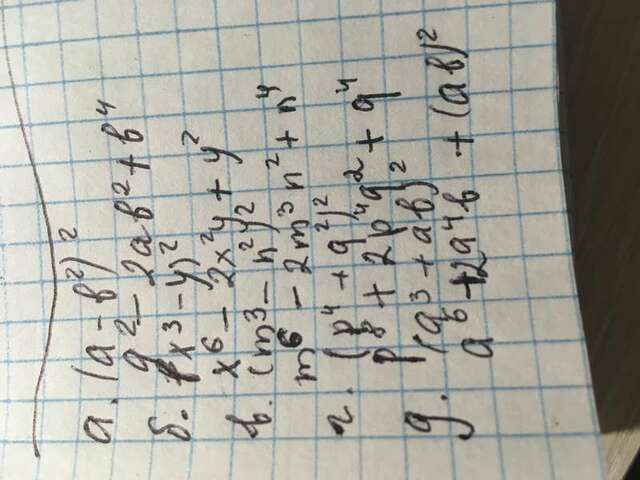 а. (a - b²)²
a² - 2ab² + b⁴
б. (x³ - y)²
x⁶ - 2x²y + y²
в. (m³ - n²)²
m⁶ - 2m³n² + n⁴
г. (p⁴ + q²)²
p⁸ + 2p⁴q² + q⁴
д. (a³ + ab)²
a⁶ + 2a⁴b + (ab)²